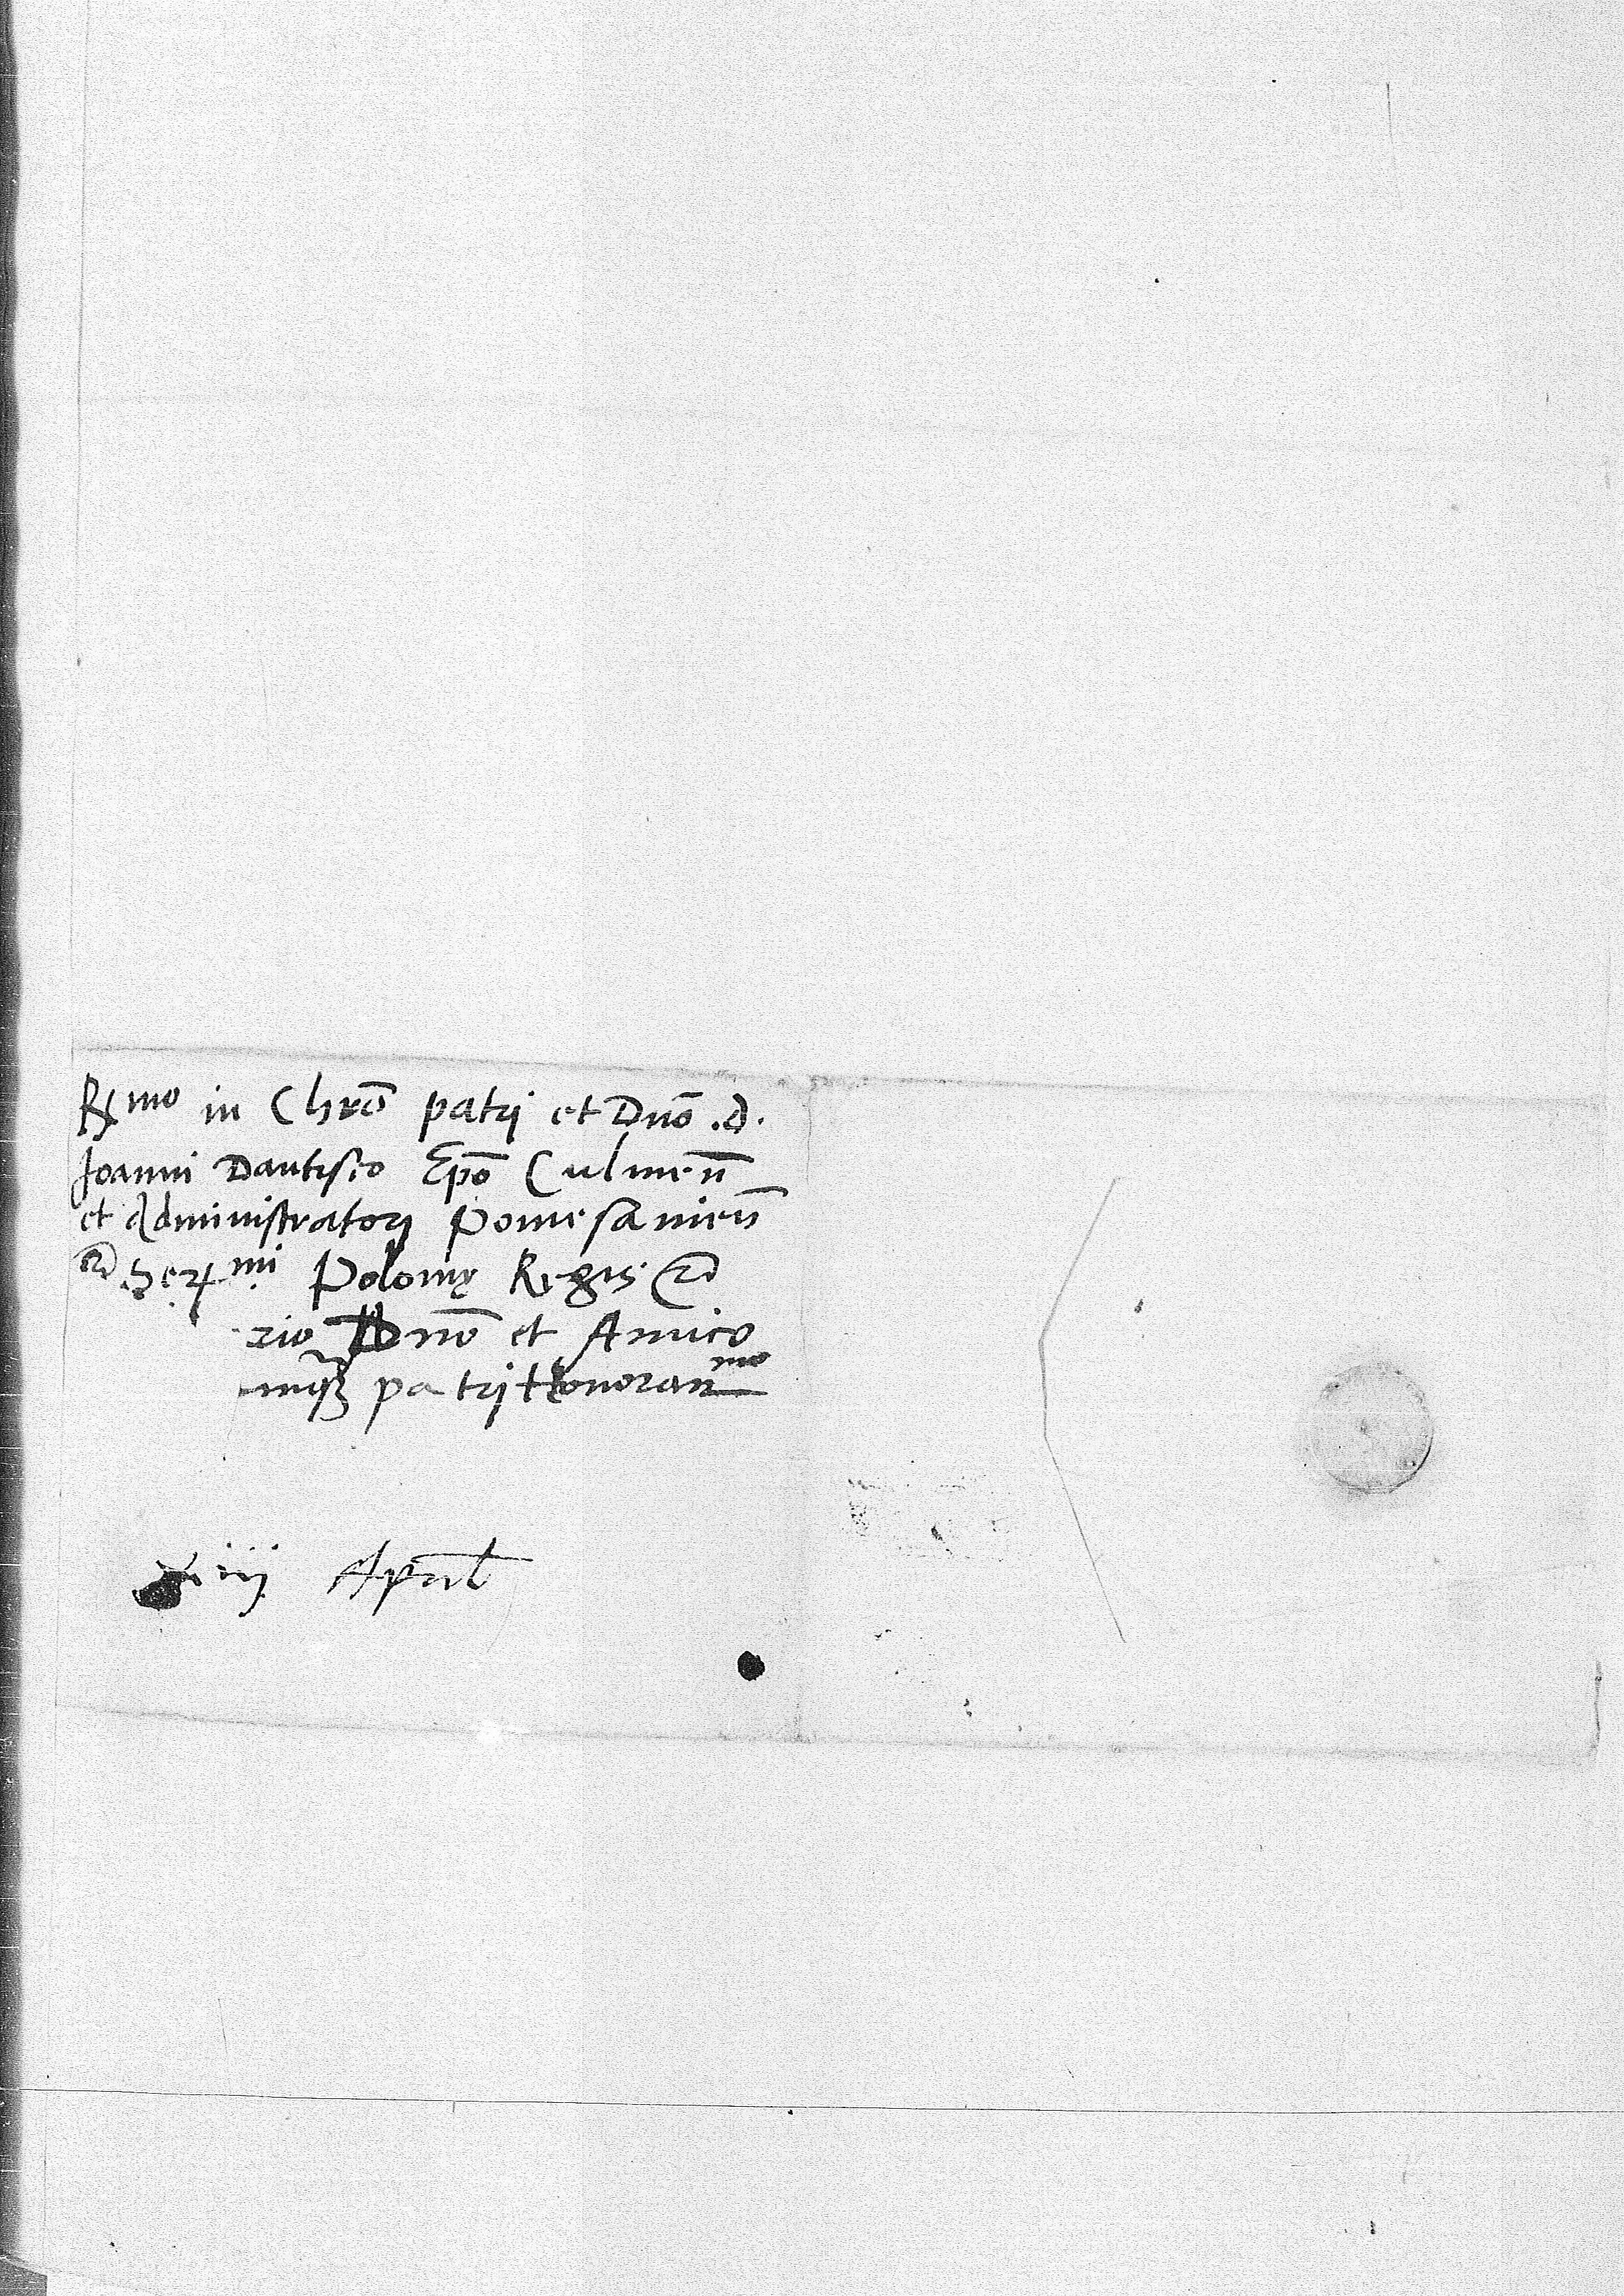 R̄mo in Chrō patrj et Dnō .d.
Joanni Dantisco Epō Culmen̄
et Administratorj Pomesanien̄
Sermi Polonię Regis
rio Dnō et Amico
patrj Honoran̄mo
iiij April